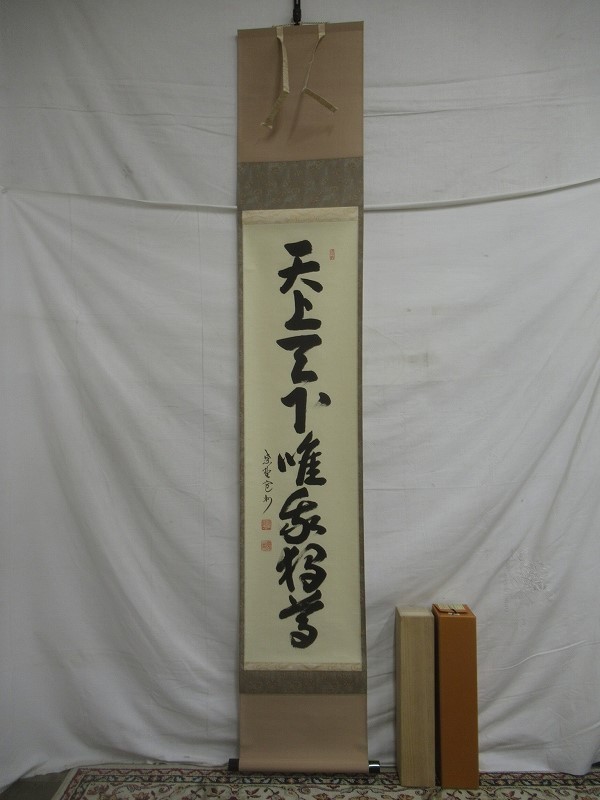 天上天下唯我独尊